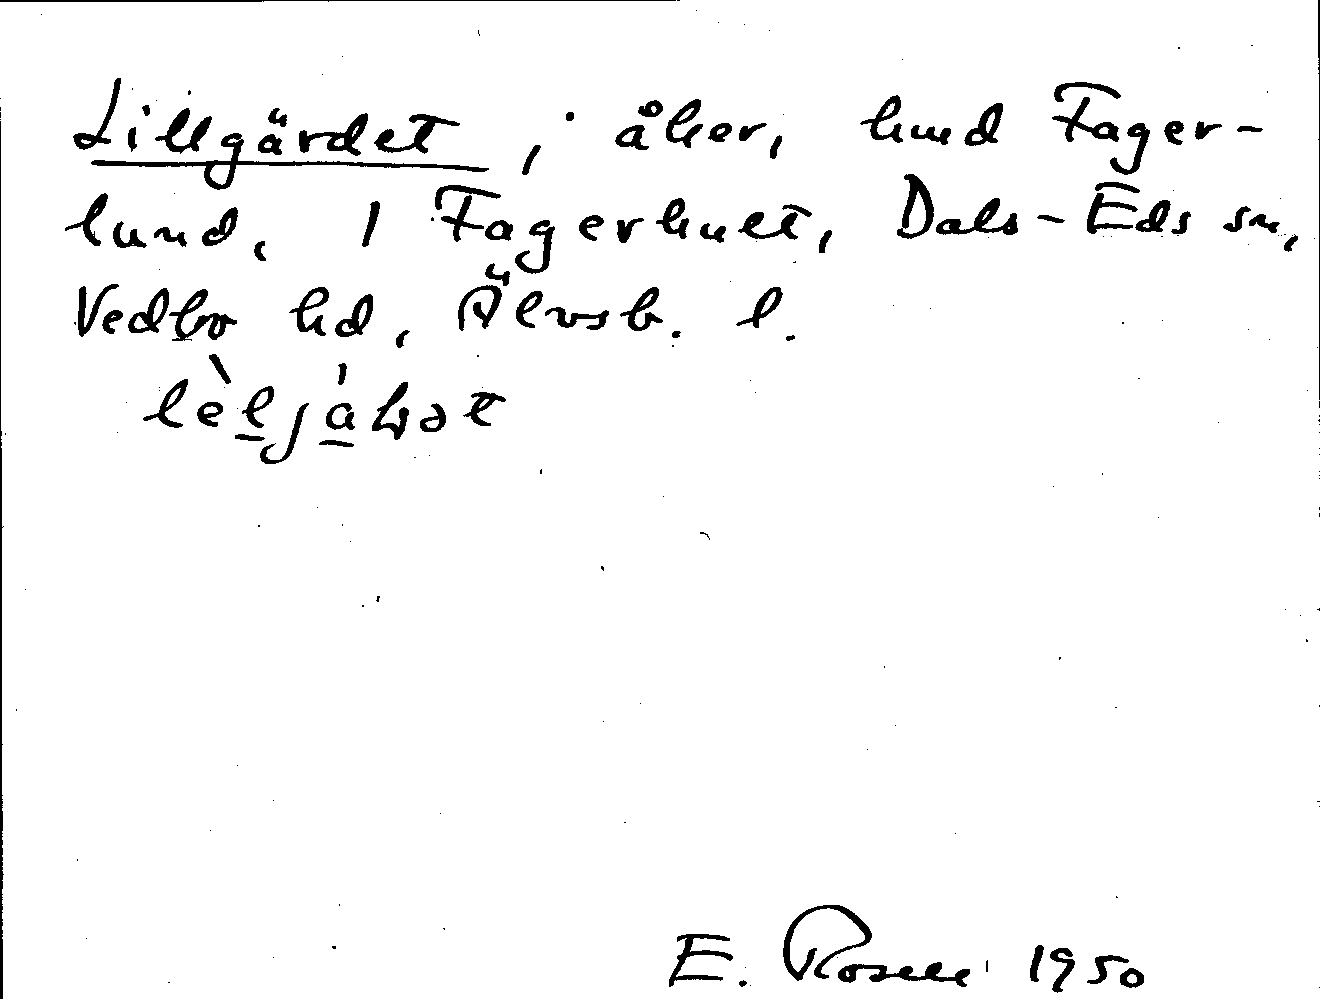 Lillgärdet, åker, hmd Fager-
lund, 1 Fagerhult, Dals-Eds sn,
Vedbo hd, Älvsb. l.
E. Rosell 1950